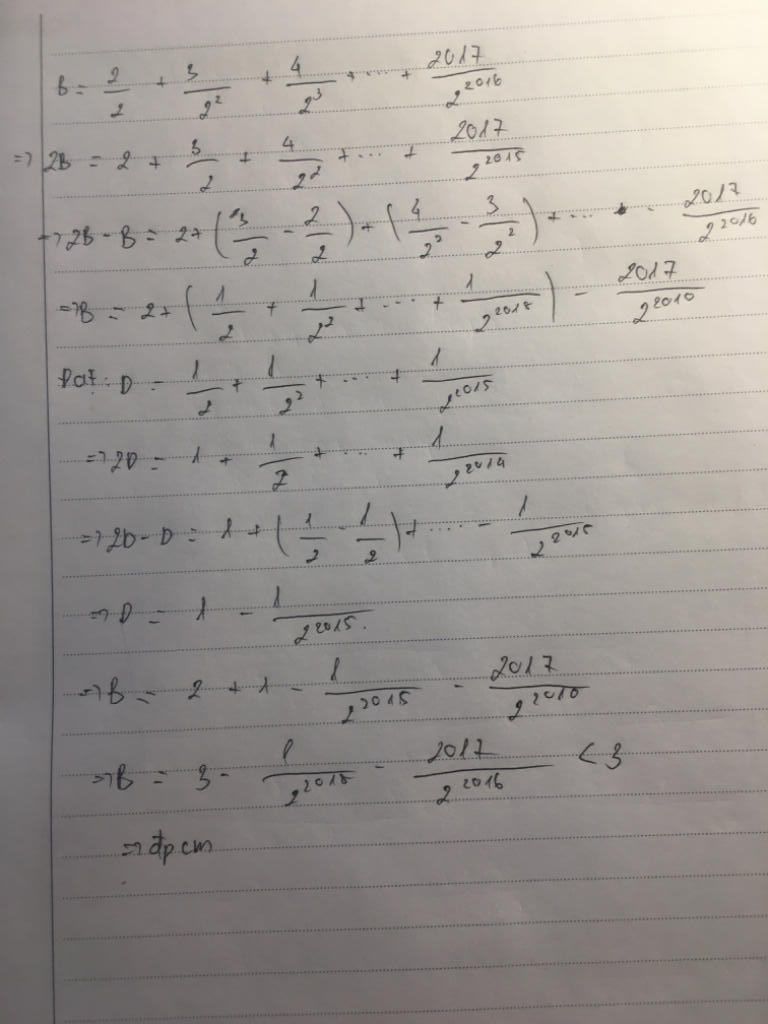 B = 2/2 + 3/2^2 + 4/2^3 + ... + 2017/2^2016
=> 2B = 2 + 3/2 + 4/2^2 + ... + 2017/2^2015
=> 2B - B = 2 + (3/2 - 2/2) + (4/2^2 - 3/2^2) + ... - 2017/2^2016
=> B = 2 + (1/2 + 1/2^2 + ... + 1/2^2015) - 2017/2^2016
Đặt: D = 1/2 + 1/2^2 + ... + 1/2^2015
=> 2D = 1 + 1/2 + ... + 1/2^2014
=> 2D - D = 1 + (1/2 - 1/2) + ... - 1/2^2015
=> D = 1 - 1/2^2015.
=> B = 2 + 1 - 1/2^2015 - 2017/2^2016
=> B = 3 - 1/2^2015 - 2017/2^2016 < 3
=> đpcm